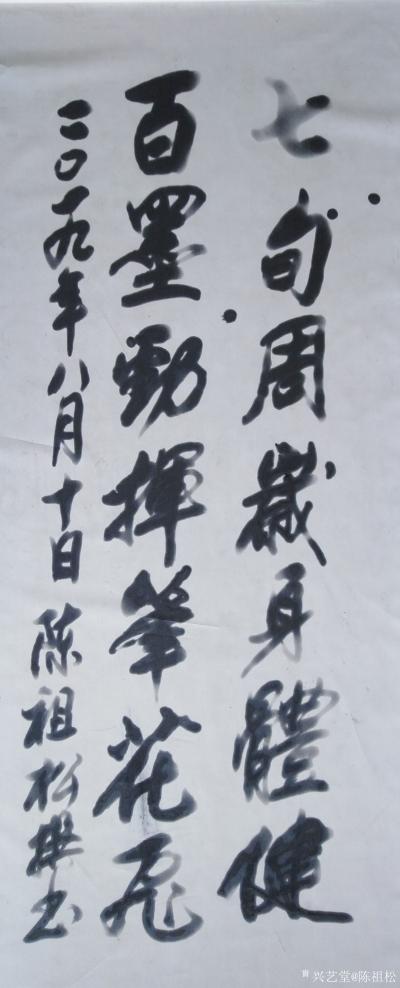 七旬周歲身體健
百墨勁揮筆花飛
二〇一九年八月十日 陈祖松撰书
兴艺堂@陈祖松